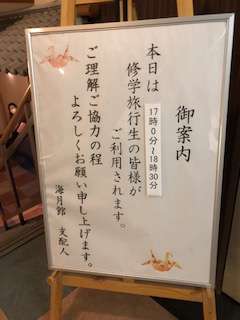 御案内
本日は
17時0分～18時30分
修学旅行生の皆様が
ご利用されます。
ご理解ご協力の程
よろしくお願い申し上げます。
海月館 支配人